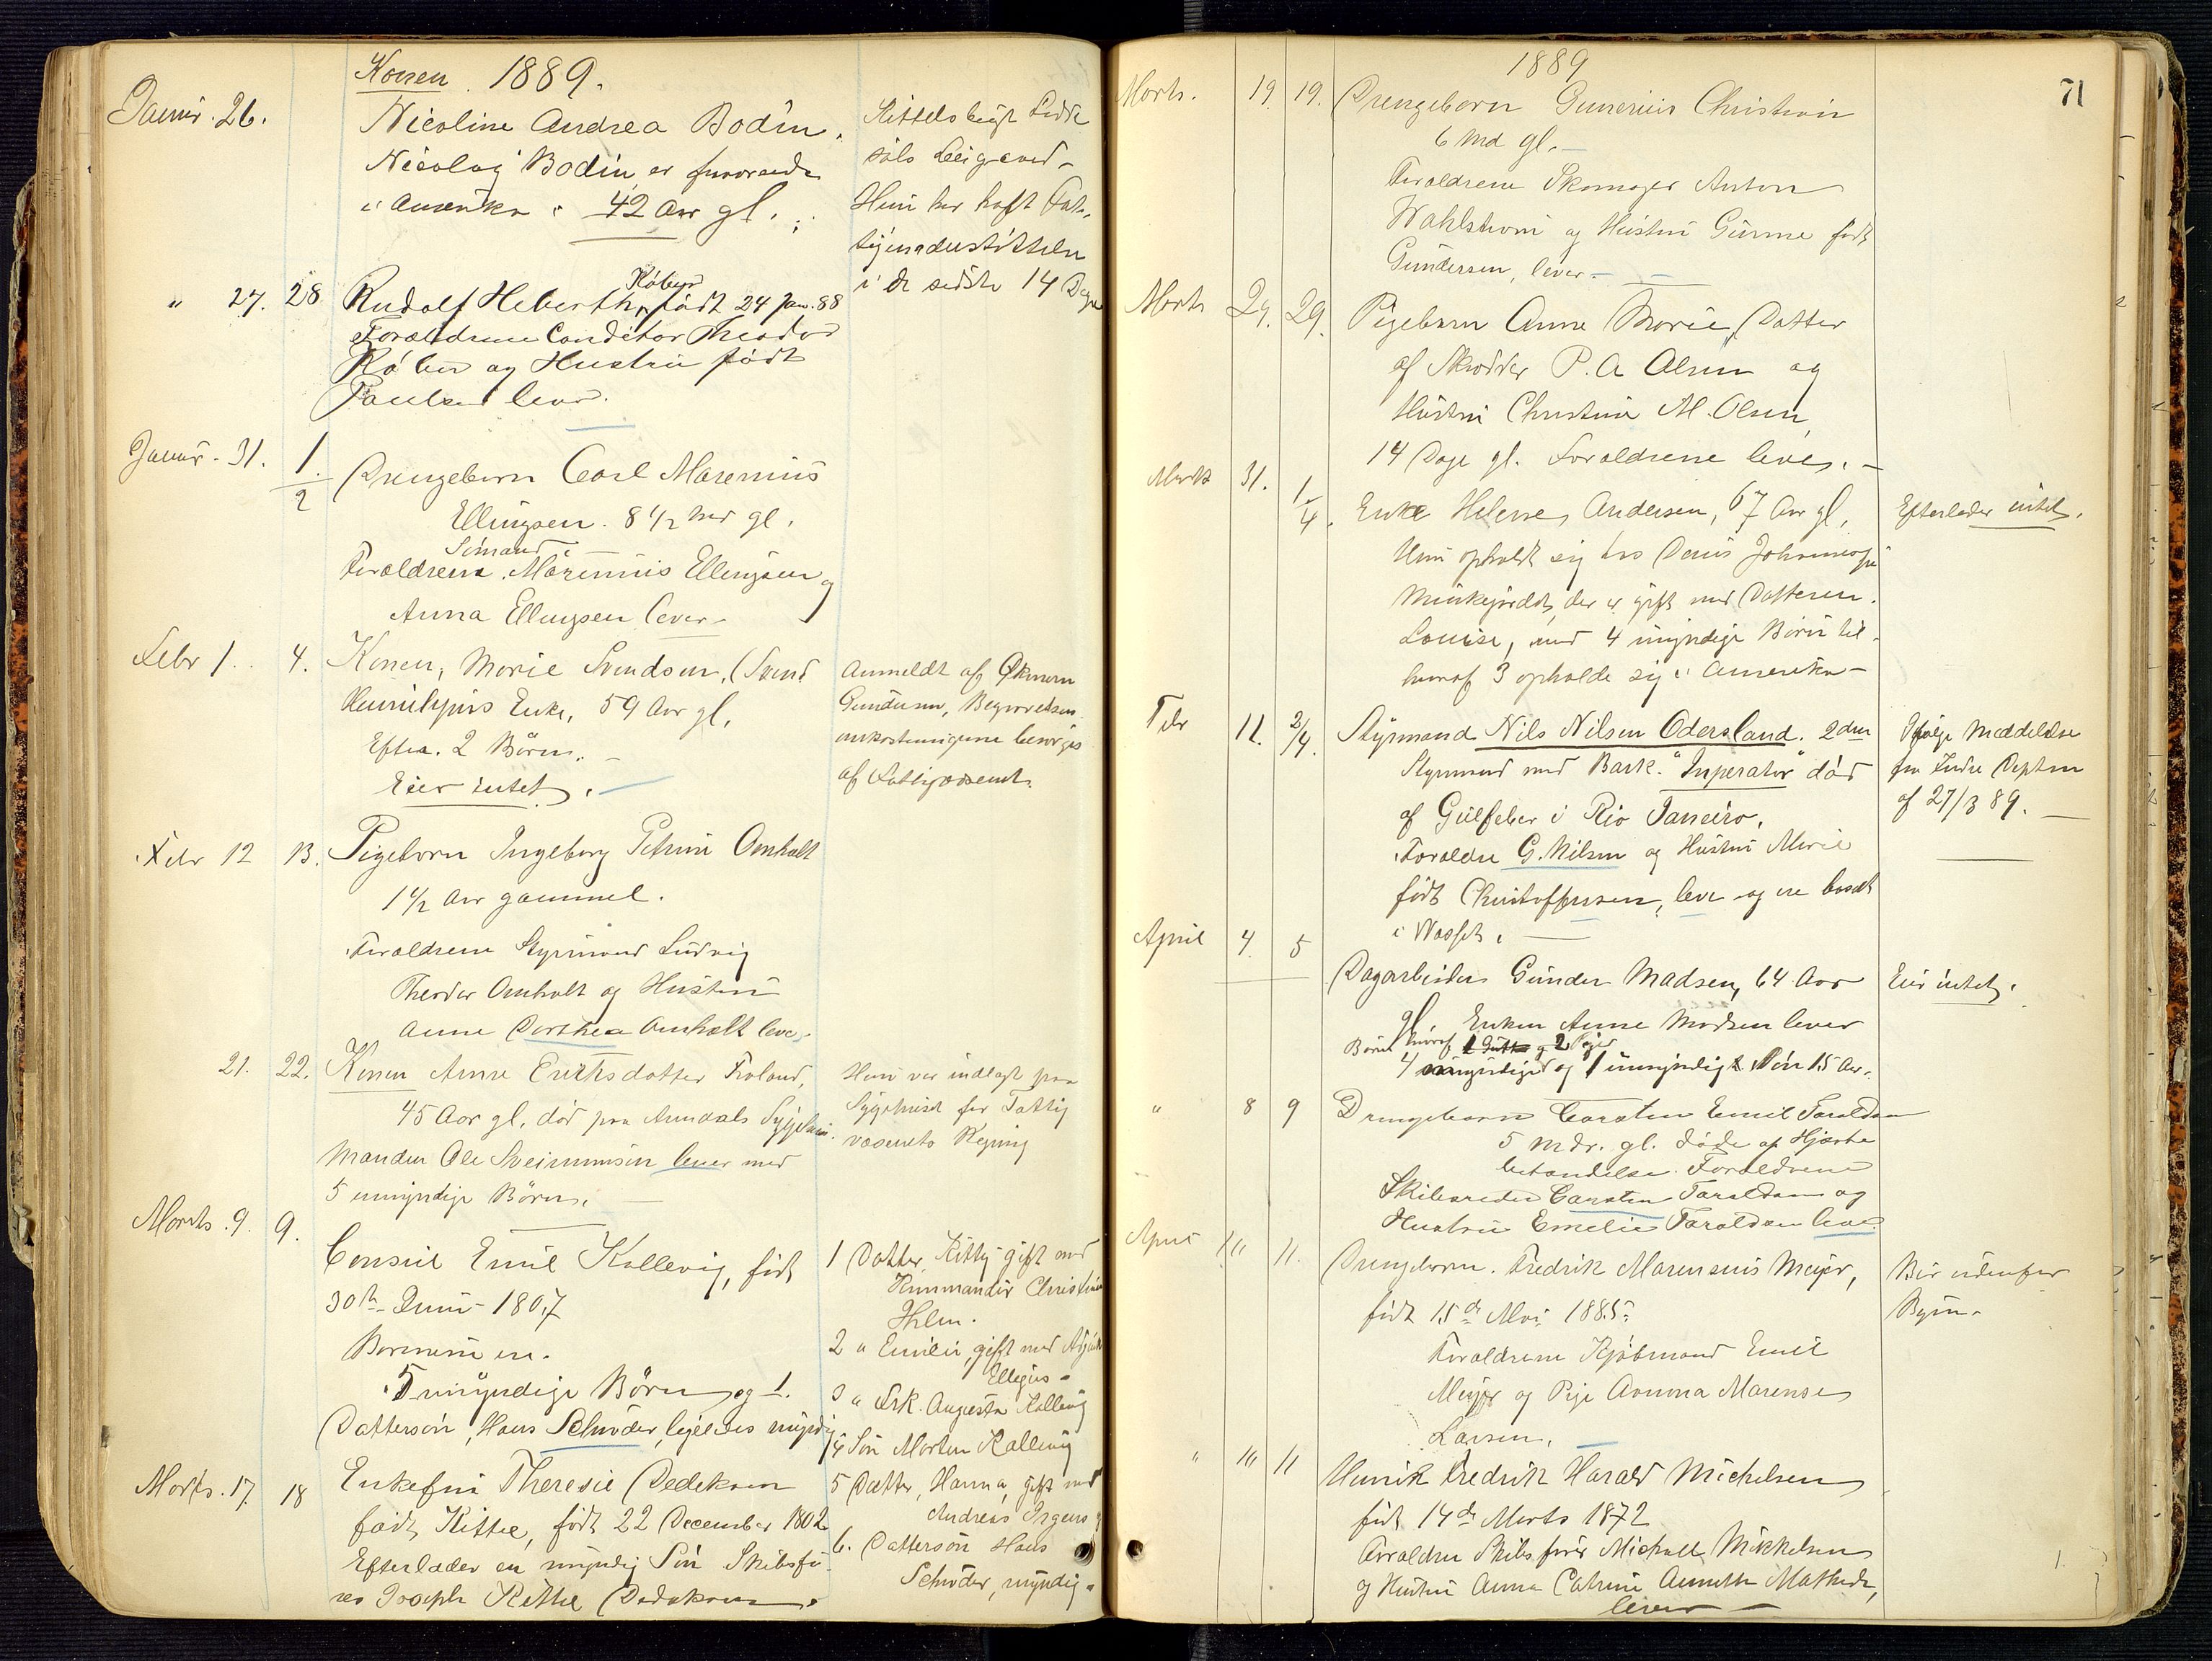 Konen 1889.
Januar. 26.
Nicoline Andrea Bodin.
Nicolay Bodin er fraværende
i Amerika : 42 Aar gl.
Hun har haft Fat-
tigunderstøttelse
i de sidste 14 Dage
" 27. 28 Rudolf Heberth Købers født 24 Jan. 88
Forældrene Conditor Theodor
Køber og Hustru født
Paulsen lever.
Januar - 31. 1/2 Drengebarn Carl Marenius
Ellingsen. 8 1/2 Md gl.
Sømand
Forældrene Marenius Ellingsen og
Anna Ellingsen lever -
Febr 1. 4. Konen, Marie Svendsen, (Svend
Enke, 59 Aar gl.
Efterl. 2 Børn.
Eier intet.
Anmeldt af
Gundersen, Begravelses
omkostningerne besørges
af Fattigvæsenet.
Febr 12 13. Pigebarn Ingeborg Petrine Omholt
1 1/2 Aar gammel.
Forældrene Styrmand Ludvig
Theodor Omholt og Hustru
Anne Dorthea Omholt leve.
21. 22. Konen Anne Eriksdatter Froland,
45 Aar gl. død paa Arendals Sygehus.
Manden Ole Sveinunsen lever med
5 umyndige Børn.
Hun var indlagt paa
Sygehuset for Fattig
væsenets Regning
Marts. 9. 9. Consul Emil Kallevig, født
30te Juni 1807
Børnene ere.
5 myndige Børn og 1.
Dattersøn, Hans Schrøder, ligeledes myndig
1 Datter, Kitty gift med
Kommandør Christian
Holm.
2 " Emilie, gift med
3 " Frk. Augusta Kallevig
4 Søn Morten Kallevig
5 Datter, Hanna, gift med
Andreas Irgens
6. Dattersøn Hans
Schrøder, myndig.
Marts. 17. 18 Enkefru Theresie Dedekam
født Kittel, født 22 December 1802
Efterlader en myndig Søn Skibsfø-
rer Joseph Kittel Dedekam.
1889
71
Marts. 19. 19. Drengebarn Gunerius Christian
6 Md gl. -
Forældrene Skomager Anton
Wahlstrøm og Hustru Gurine født
Gundersen, lever. -
Marts 29. 29. Pigebarn Anne Marie, Datter
af Skrædder P. A Olsen og
Hustru Christine M. Olsen,
14 Dage gl. Forældrene leve. -
Marts 31. 1/4. Enke Helene Andersen, 67 Aar gl.
Hun opholdt sig hos
Munkejordet, der er gift med Datteren
Louise, med 4 umyndige Børn til -
hvoraf 3 opholde sig i Amerika -
Efterlader intet.
Febr 11. 2/4. Styrmand Nils Nilsen Odersland. 2den
Styrmand med Bark. "Inperator" død
af Gulfeber i Rio Janeiro.
Forældre G. Nilsen og Hustru Marie
født Christoffersen, leve og ere bosat
i
Ifølge Meddelelse
fra Indre Deptm
af 27/3 89.
April 4. 5 Dagarbeider Gunder Madsen, 64 Aar
gl. Enken Anne Madsen lever
Børn hvoraf 2 Piger
4 myndige og 1 umyndig Søn 15 Aar.
Eier intet.
" 8 9 Drengebarn Carsten Emil Taraldsen
5 mdr. gl. døde af Hjærte
betændelse. Forældrene
Skibsreder Carsten Taraldsen og
Hustru Emelie Taraldsen leve
April 10 11. Drengebarn. Fredrik Marensius Meyer,
født 15de Mai 1885.
Forældrene Kjøbmand Emil
Meyer og Pige Marense
Larsen.
Bor udenfor
Byen.
" 10 11 Henrik Fredrik Harald Michelsen
født 14de Marts 1872
Forældre Skibsfører Michael Mikkelsen
og Hustru Anna Catrine Annette Mathide,
lever -